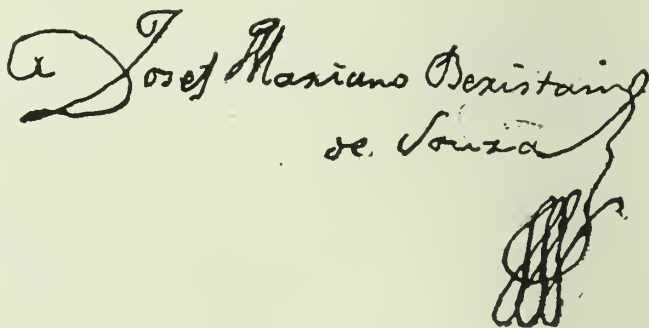 a Josef Mariano Beristain
de Souza